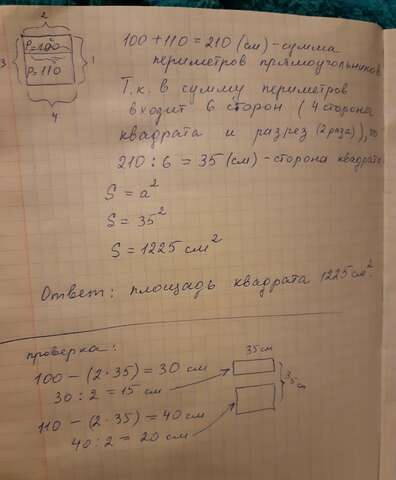 2
P=100
3
1
P=110
4
100+110=210 (см)-сумма
периметров прямоугольников
Т.к. в сумму периметров
входит 6 сторон (4 сторона
квадрата и разрез (2 раза)), то
210 : 6 = 35 (см) - сторона квадрата
S = a²
S = 35²
S = 1225 см²
Ответ: площадь квадрата 1225 см².
проверка:
100 - (2·35) = 30 см
30 : 2 = 15 см
110 - (2·35) = 40 см
40 : 2 = 20 см
35 см
35 см